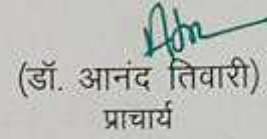 (डॉ. आनंद तिवारी)
प्राचार्य